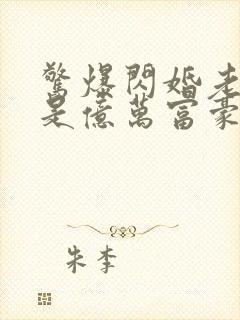 驚爆閃婚老
是億萬富豪
朱李